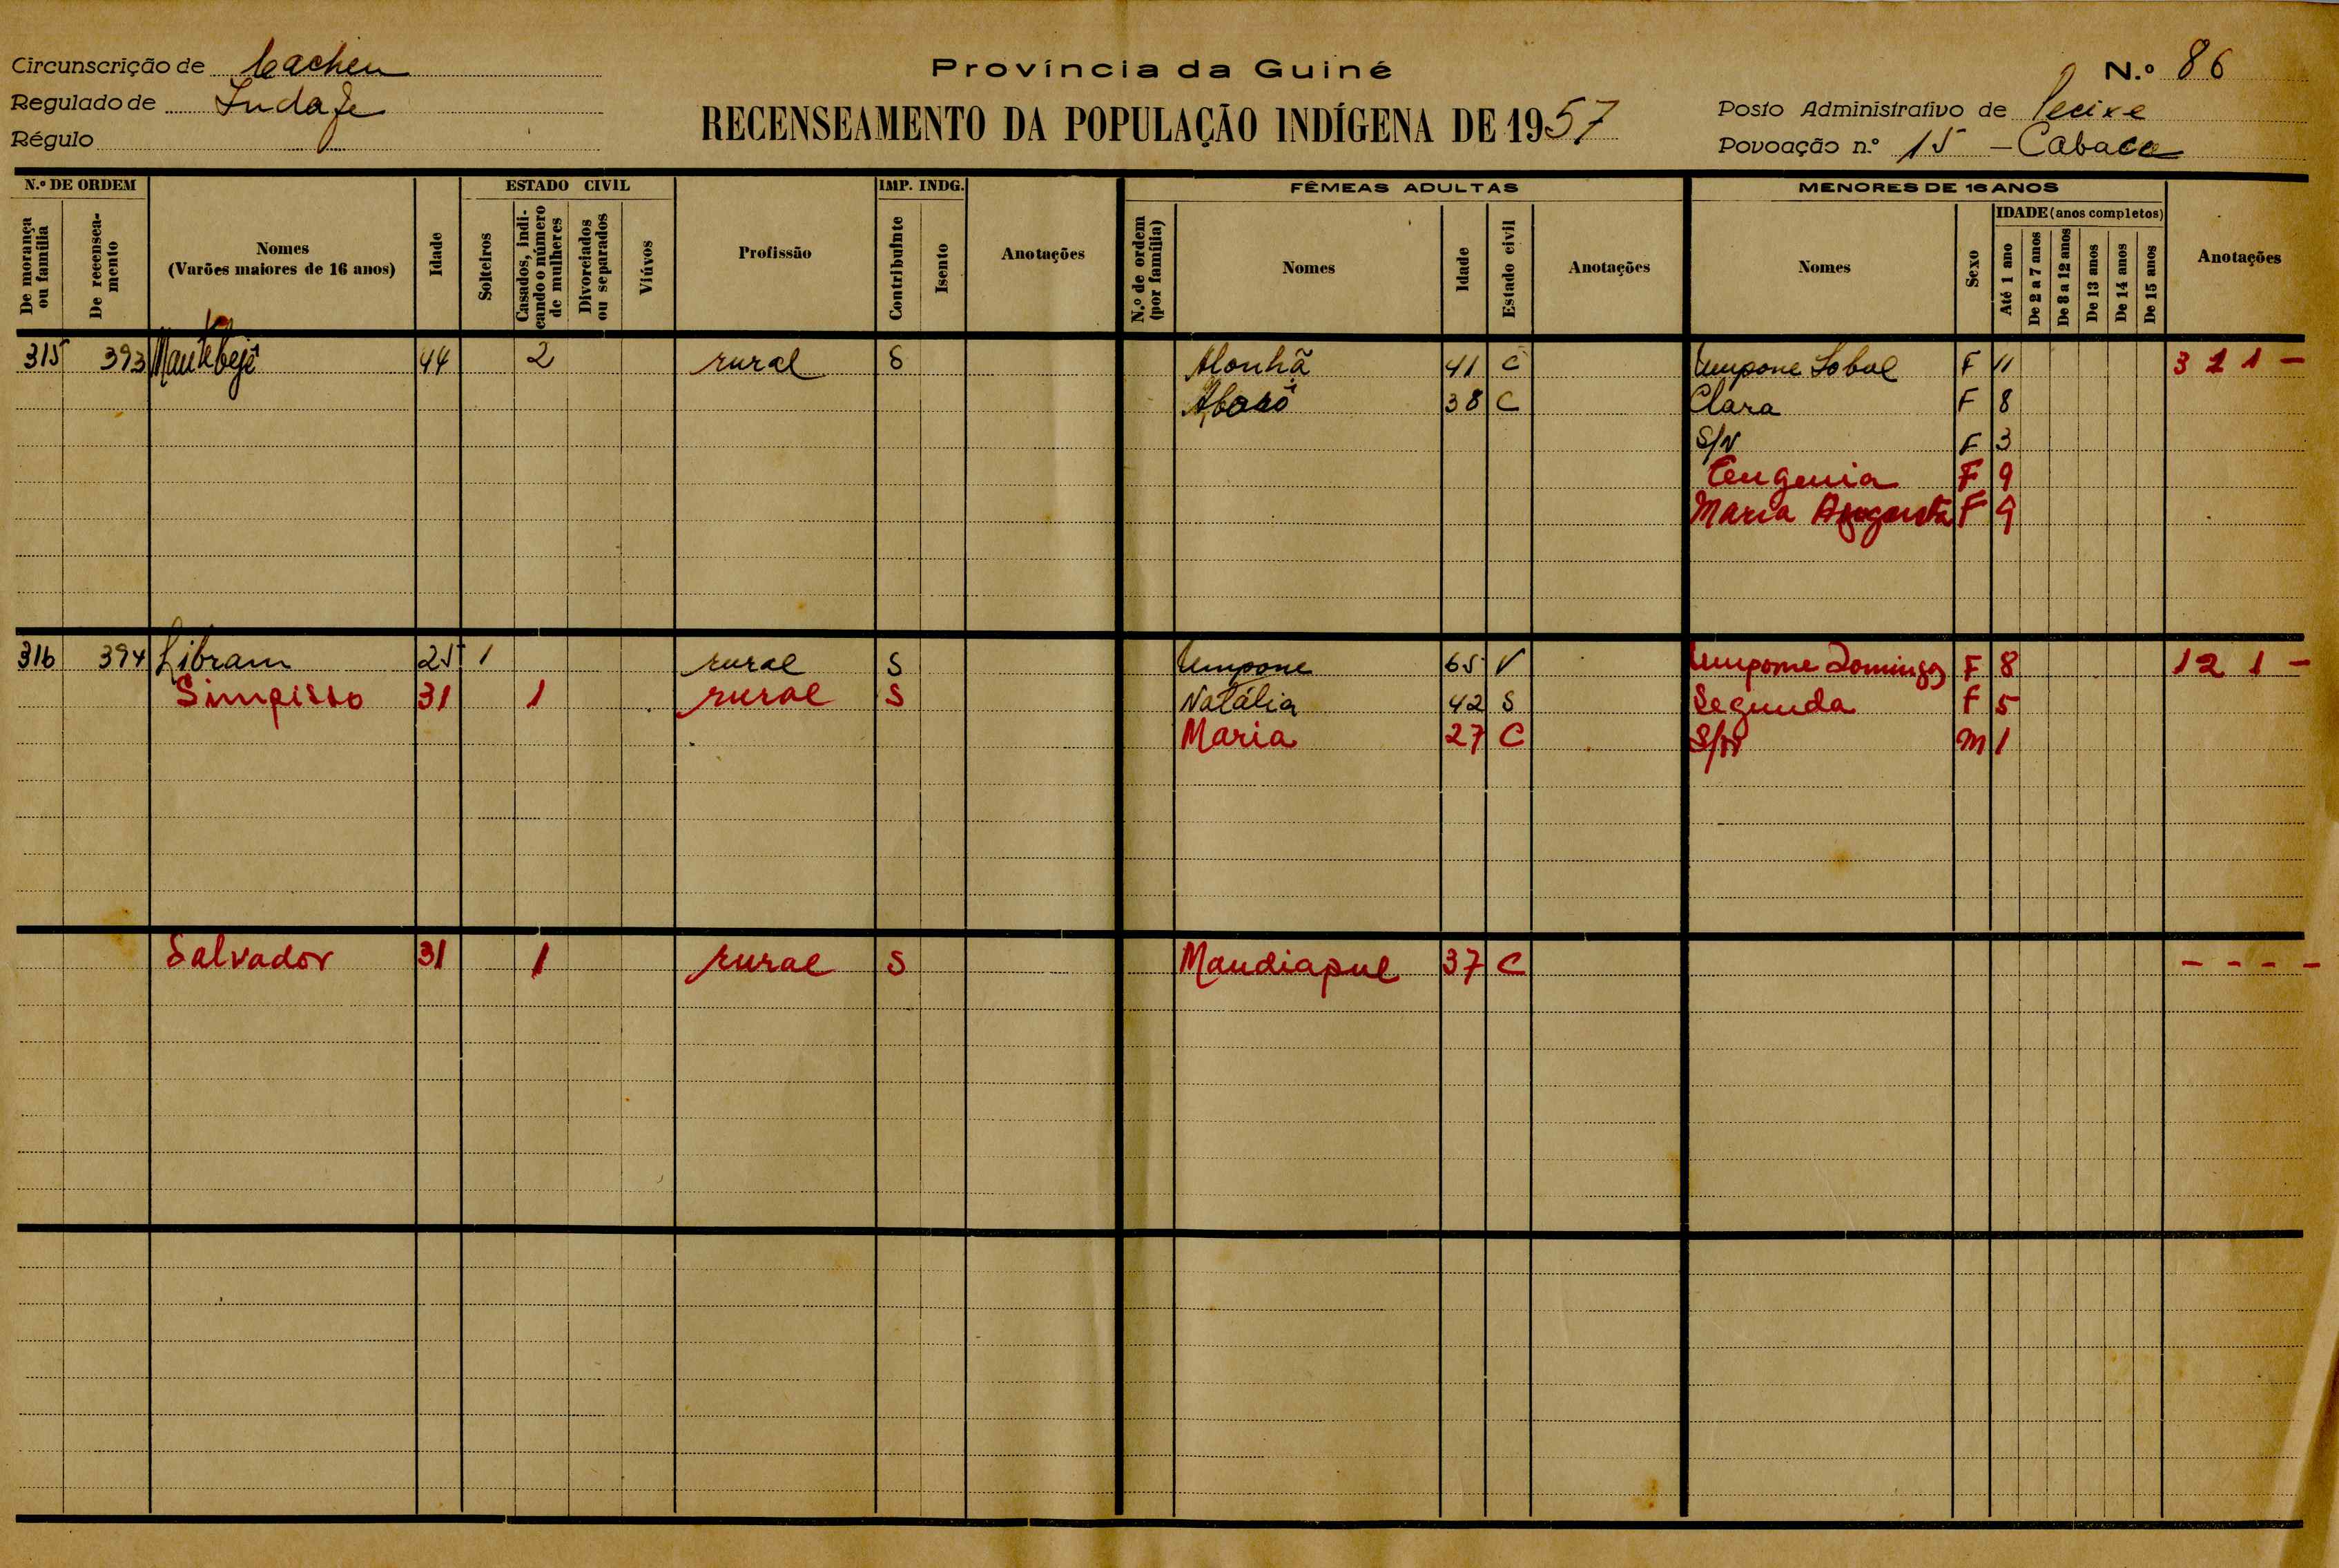 Circunscrição de Cacheu
Província da Guiné
N.º 86
Regulado de Indafe
RECENSEAMENTO DA POPULAÇÃO INDÍGENA DE 1957
Posto Administrativo de Pecixe
Régulo
Povoação n.º 15 - Cabaca
N.º DE ORDEM
ESTADO CIVIL
IMP. INDG.
FÊMEAS ADULTAS
MENORES DE 16 ANOS
De morança ou família
De recenseamento
Nomes
(Varões maiores de 16 anos)
Idade
Solteiros
Casados, indicando o número de mulheres
Divorciados ou separados
Viúvos
Profissão
Contribuinte
Isento
Anotações
N.º de ordem (por família)
Nomes
Idade
Estado civil
Anotações
Nomes
Sexo
IDADE (anos completos)
Até 1 ano
De 2 a 7 anos
De 8 a 12 anos
De 13 anos
De 14 anos
De 15 anos
Anotações
315 393 44 2 rural S Alonhã 41 C Umpone Lobol F 11 3 2 1 -
38 C Clara F 8
S/N F 3
Eugenia F 9
Maria Augusta F 9
316 394 Libram 25 1 rural S Umpone 65 V Umpone Domingos F 8 1 2 1 -
Simpisso 31 1 rural S Natália 42 S Segunda F 5
Maria 27 C S/N M 1
Salvador 31 1 rural S Mandiapul 37 C - - - -